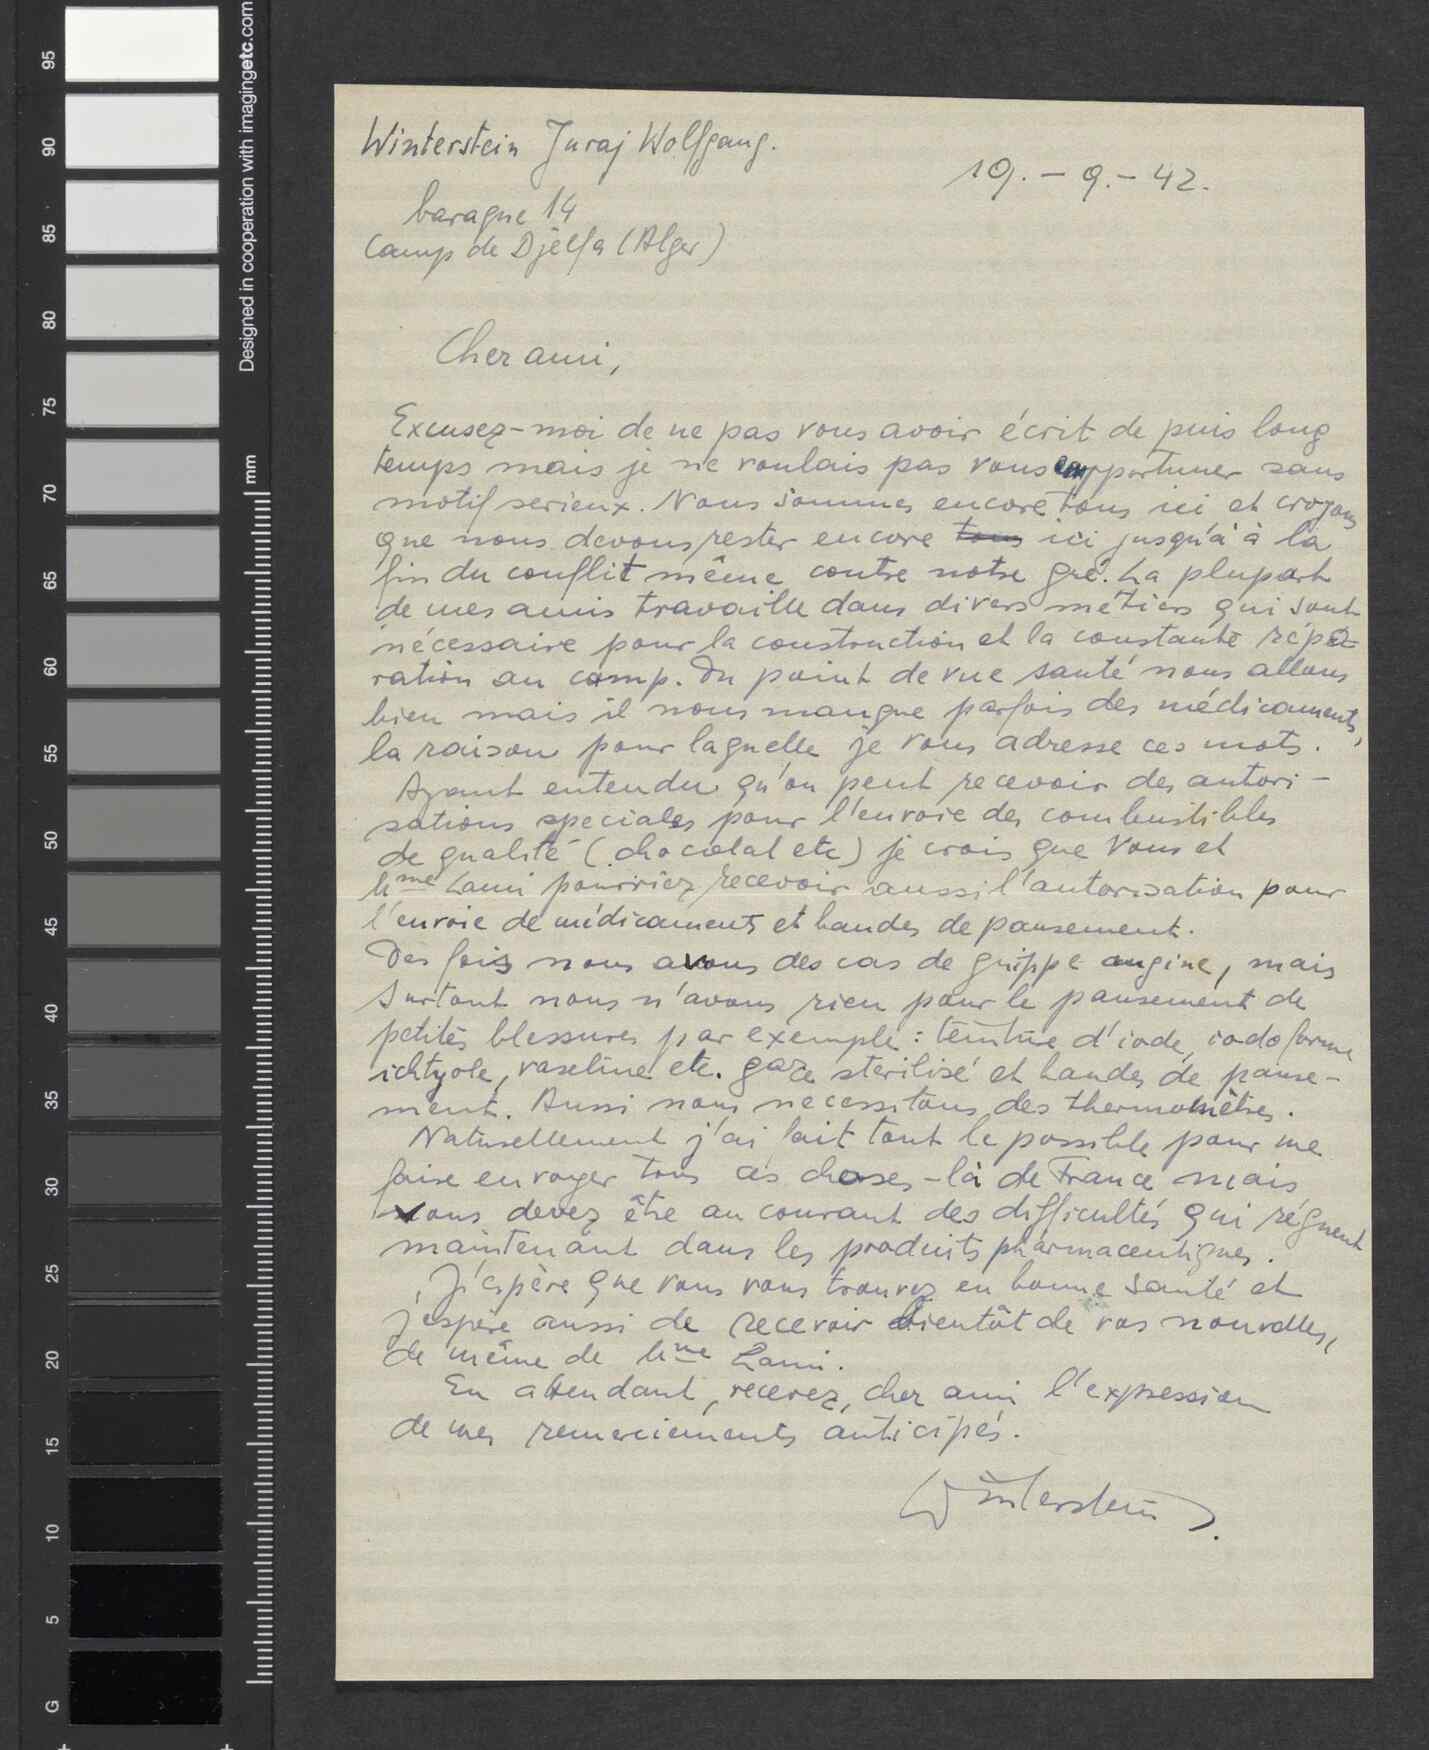 95
90
85
80
75
70
65
60
55
50
45
40
35
30
25
20
15
10
5
G
Designed in cooperation with imagingetc.com
mm
Winterstein Juraj Wolfgang.
19. - 9. - 42.
baraque 14
Camp de Djelfa (Alger)
Cher ami,
Excusez-moi de ne pas vous avoir écrit de puis long
temps mais je ne voulais pas vous importuner sans
motif serieux. Nous sommes encore tous ici et croyons
que nous devons rester encore tous ici jusqu'à à la
fin du conflit même contre notre gré. La plupart
de mes amis travaille dans divers métiers qui sont
nécessaire pour la construction et la constante répa-
ration au camp. Du point de vue santé nous allons
bien mais il nous manque parfois des médicaments,
la raison pour laquelle je vous adresse ces mots.
Ayant entendu qu'on peut recevoir des autori-
sations speciales pour l'envoie des combustibles
de qualité (chocolat etc) je crois que Vous et
Mme Lami pourriez recevoir aussi l'autorisation pour
l'envoie de médicaments et bandes de pansement.
Des fois nous avons des cas de grippe angine, mais
surtout nous n'avons rien pour le pansement de
petites blessures par exemple: teinture d'iode, iodoforme
ichtyole, vaseline etc. gaze sterilisé et bandes de panse-
ment. Aussi nous necessitons des thermomètres.
Naturellement j'ai fait tout le possible pour me
faire envoyer tous ces choses-là de France mais
vous devez être au courant des difficultés qui régnent
maintenant dans les produits pharmaceutiques.
J'espère que vous vous trouvez en bonne santé et
j'espère aussi de recevoir bientôt de vos nouvelles,
de même de Mme Lami.
En attendant, recevez, cher ami l'expression
de mes remerciements anticipés.
Winterstein J.